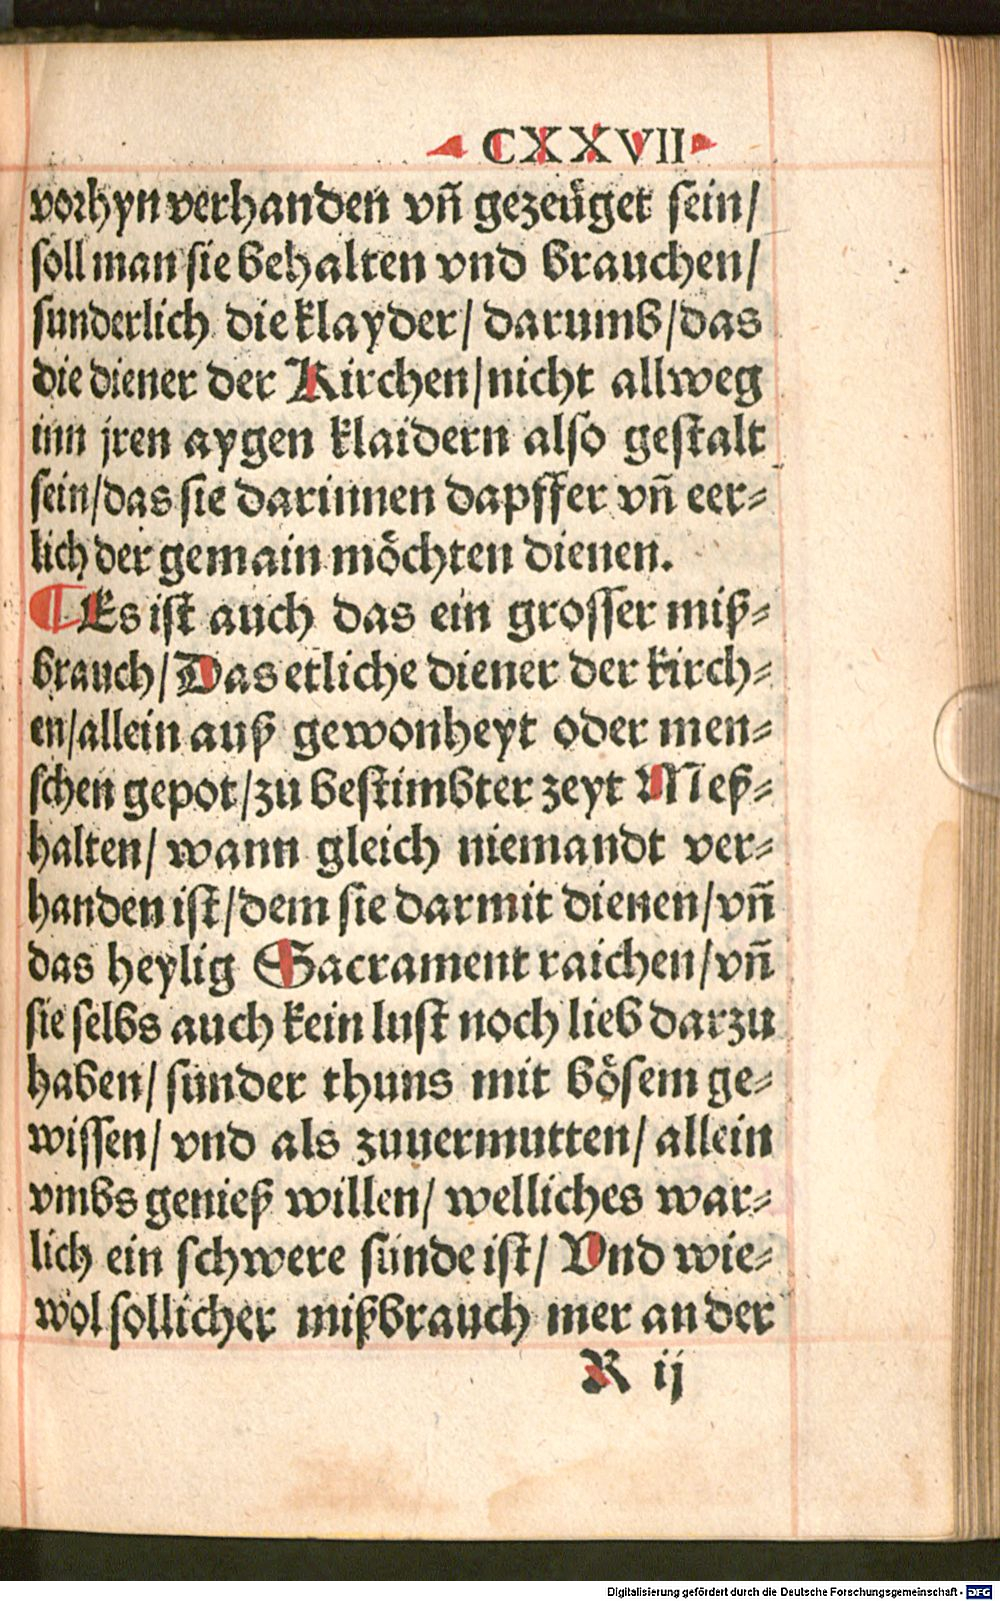 CXXVII
vorhyn verhanden vn̄ gezeüget sein/
soll man sie behalten vnd brauchen/
sunderlich die klayder/ darumb/das
die diener der Kirchen/nicht allweg
inn jren aygen klaidern also gestalt
sein/das sie darinnen dapffer vn̄ eer⸗
lich der gemain möchten dienen.
¶Es ist auch das ein grosser miß⸗
brauch/Das etliche diener der kirch⸗
en/allein auß gewonheyt oder men⸗
schen gepot/zu bestimbter zeyt Meß⸗
halten/ wann gleich niemandt ver⸗
handen ist/dem sie darmit dienen/vn̄
das heylig Sacrament raichen/vn̄
sie selbs auch kein lust noch lieb darzu
haben/ sunder thuns mit bösem ge⸗
wissen/ vnd als zuuermutten/ allein
vmbs genieß willen/ welliches war⸗
lich ein schwere sünde ist/ Vnd wie⸗
wol sollicher mißbrauch mer an der
R ij
Digitalisierung gefördert durch die Deutsche Forschungsgemeinschaft - DFG